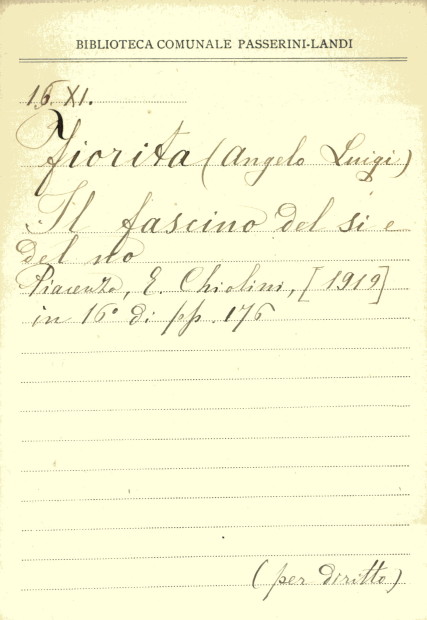 BIBLIOTECA COMUNALE PASSERINI-LANDI
15. XI.
Fiorita (Angelo Luigi)
Il fascino del si e
del no
Piacenza, E. Chiolini, [1919]
in 16° di pp. 176
(per diritto)